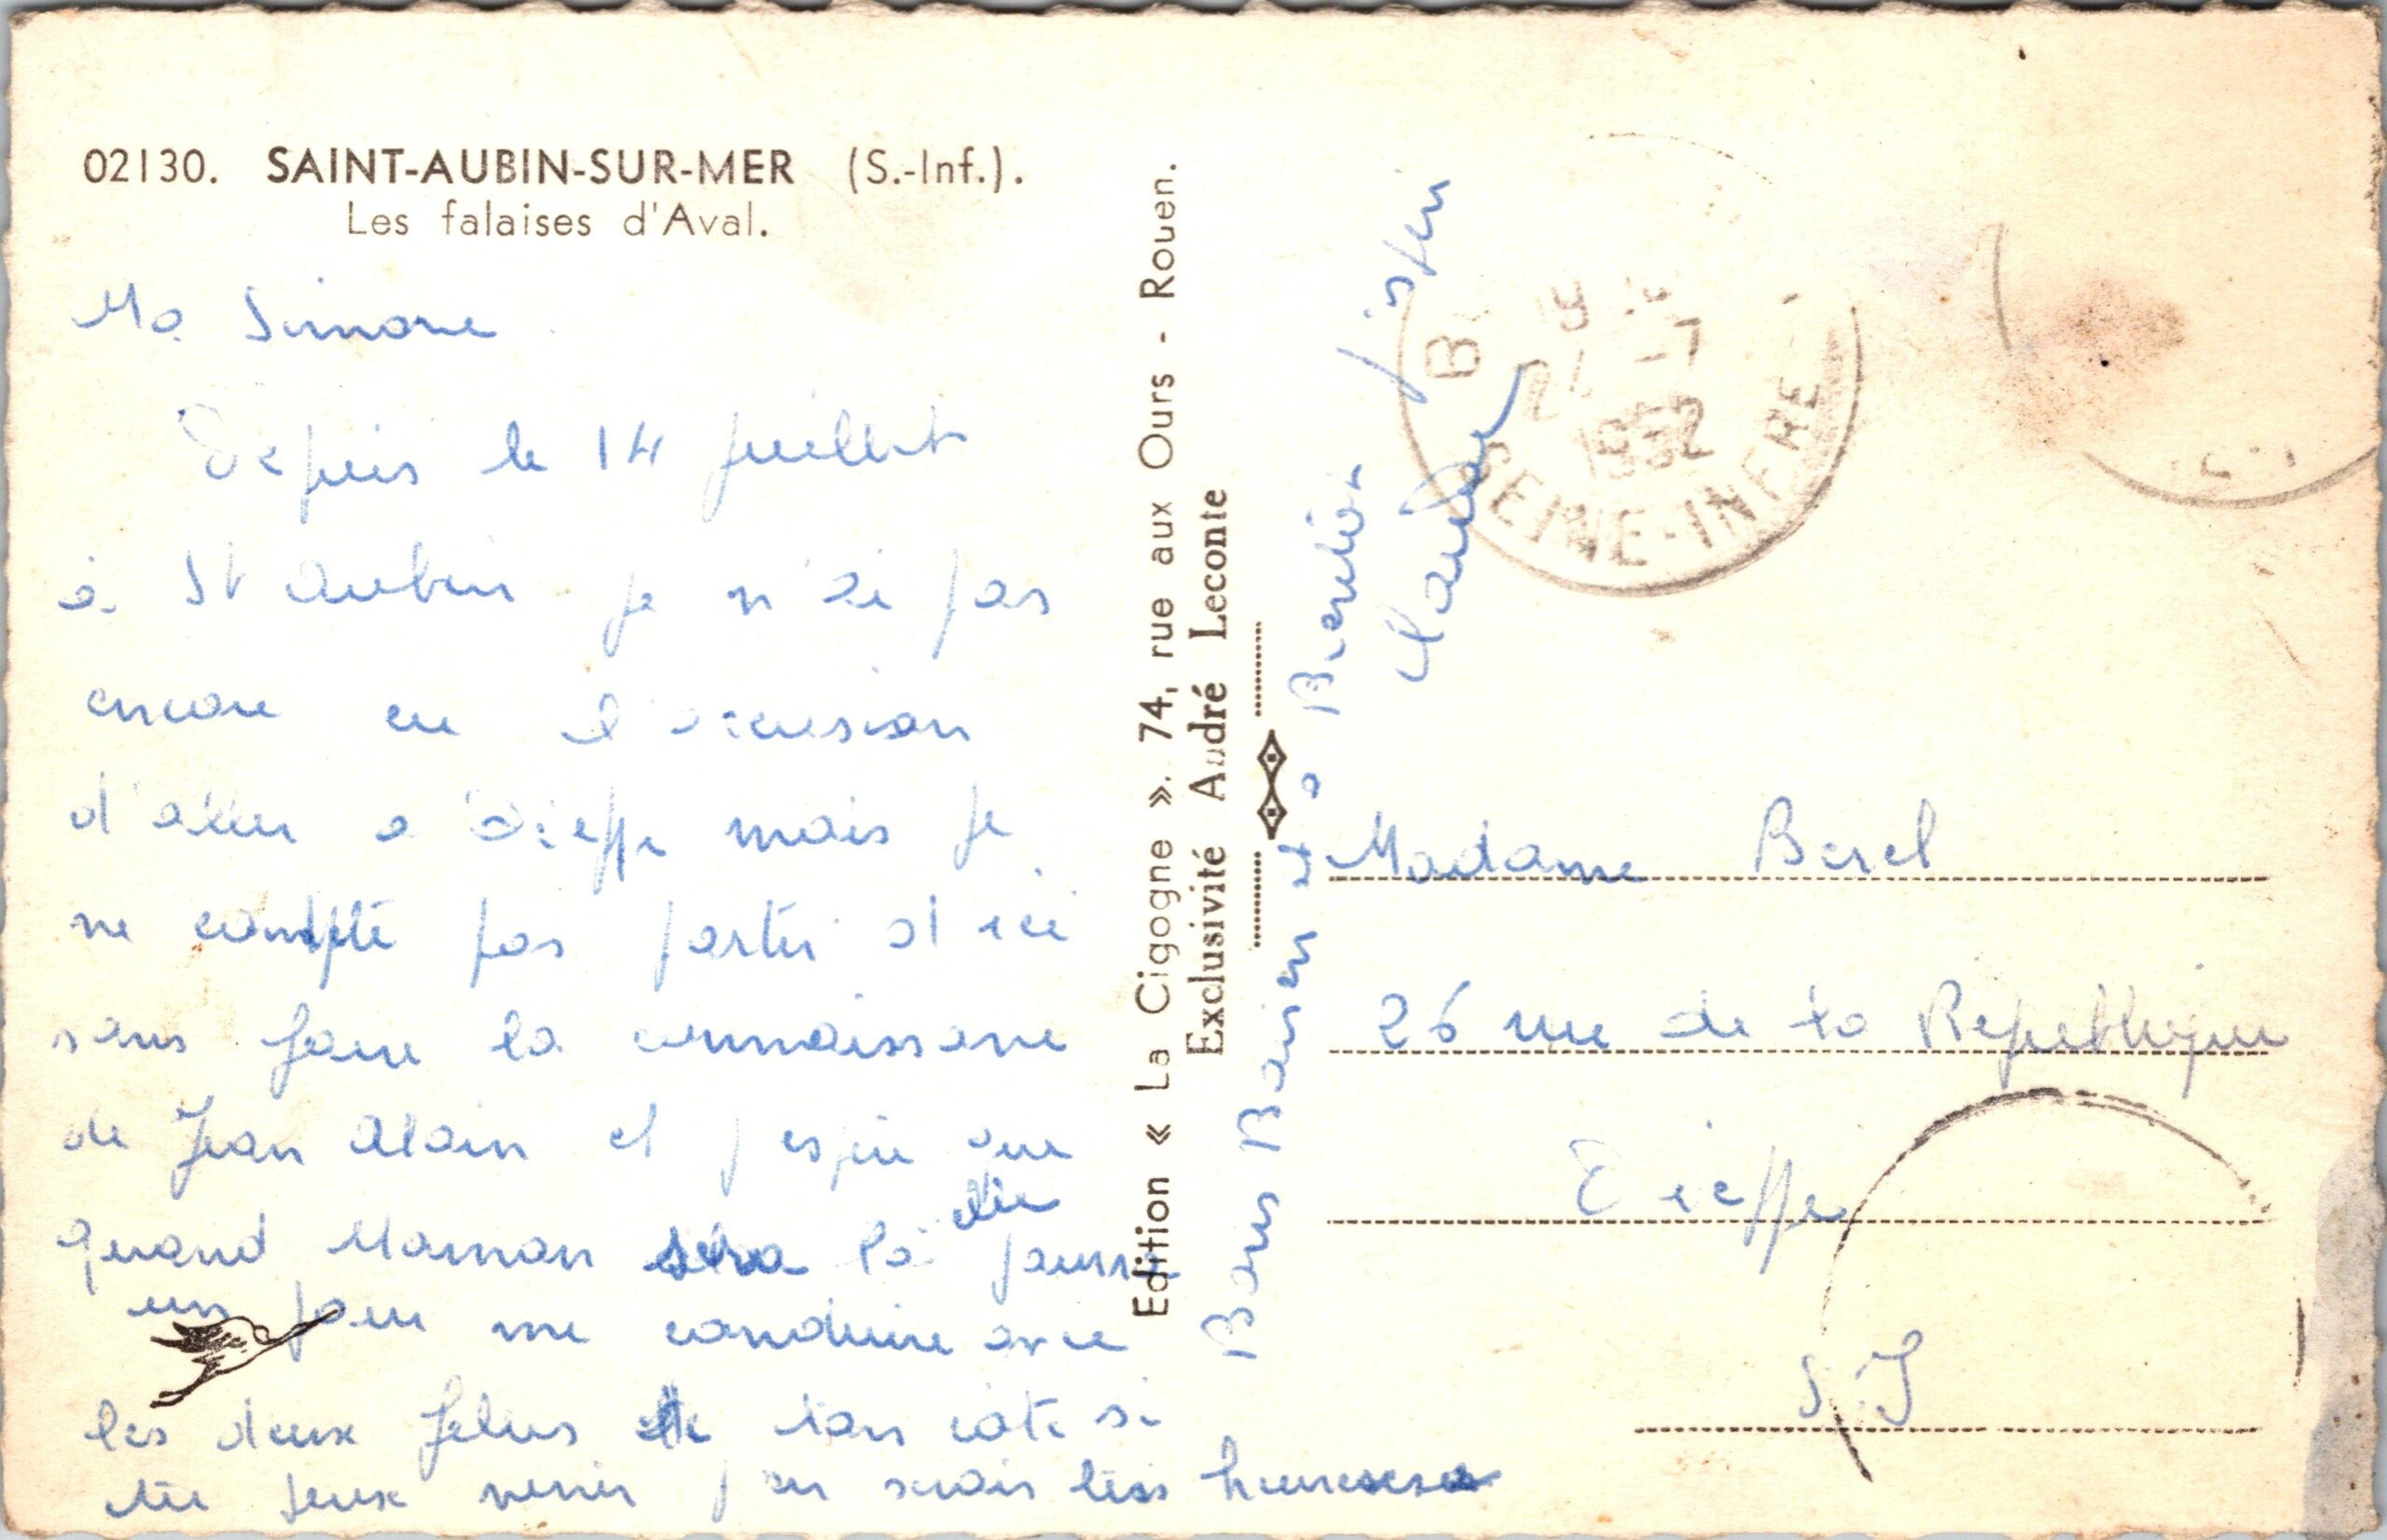 02130. SAINT-AUBIN-SUR-MER (S.-Inf.).
Les falaises d'Aval.
Ma Simone
Depuis le 14 juillet
à St Aubin je n'ai pas
encore eu l'occasion
d'aller a Dieppe mais je
ne compte pas partir d'ici
sans faire la connaissance
de Jean Alain et j'espere que
quand Maman sera là elle pourra
un jour me conduire avec
les deux de ton coté si
tu peux venir j'en serais tres heureuse
Edition « La Cigogne ». 74, rue aux Ours - Rouen.
Exclusivité André Leconte
Bons Baisers et a Bientot
B
21 -7
1952
SEINE-INFRE
Madame Borel
26 rue de la Republique
Dieppe
S. I